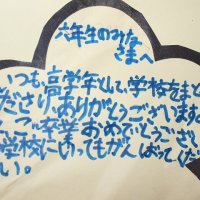 六年生のみな
さまへ
いつも高学年として、学校をまと
ださりありがとうございます。
ご卒業おめでとうござ
学校にいってもがんばってくだ
い。